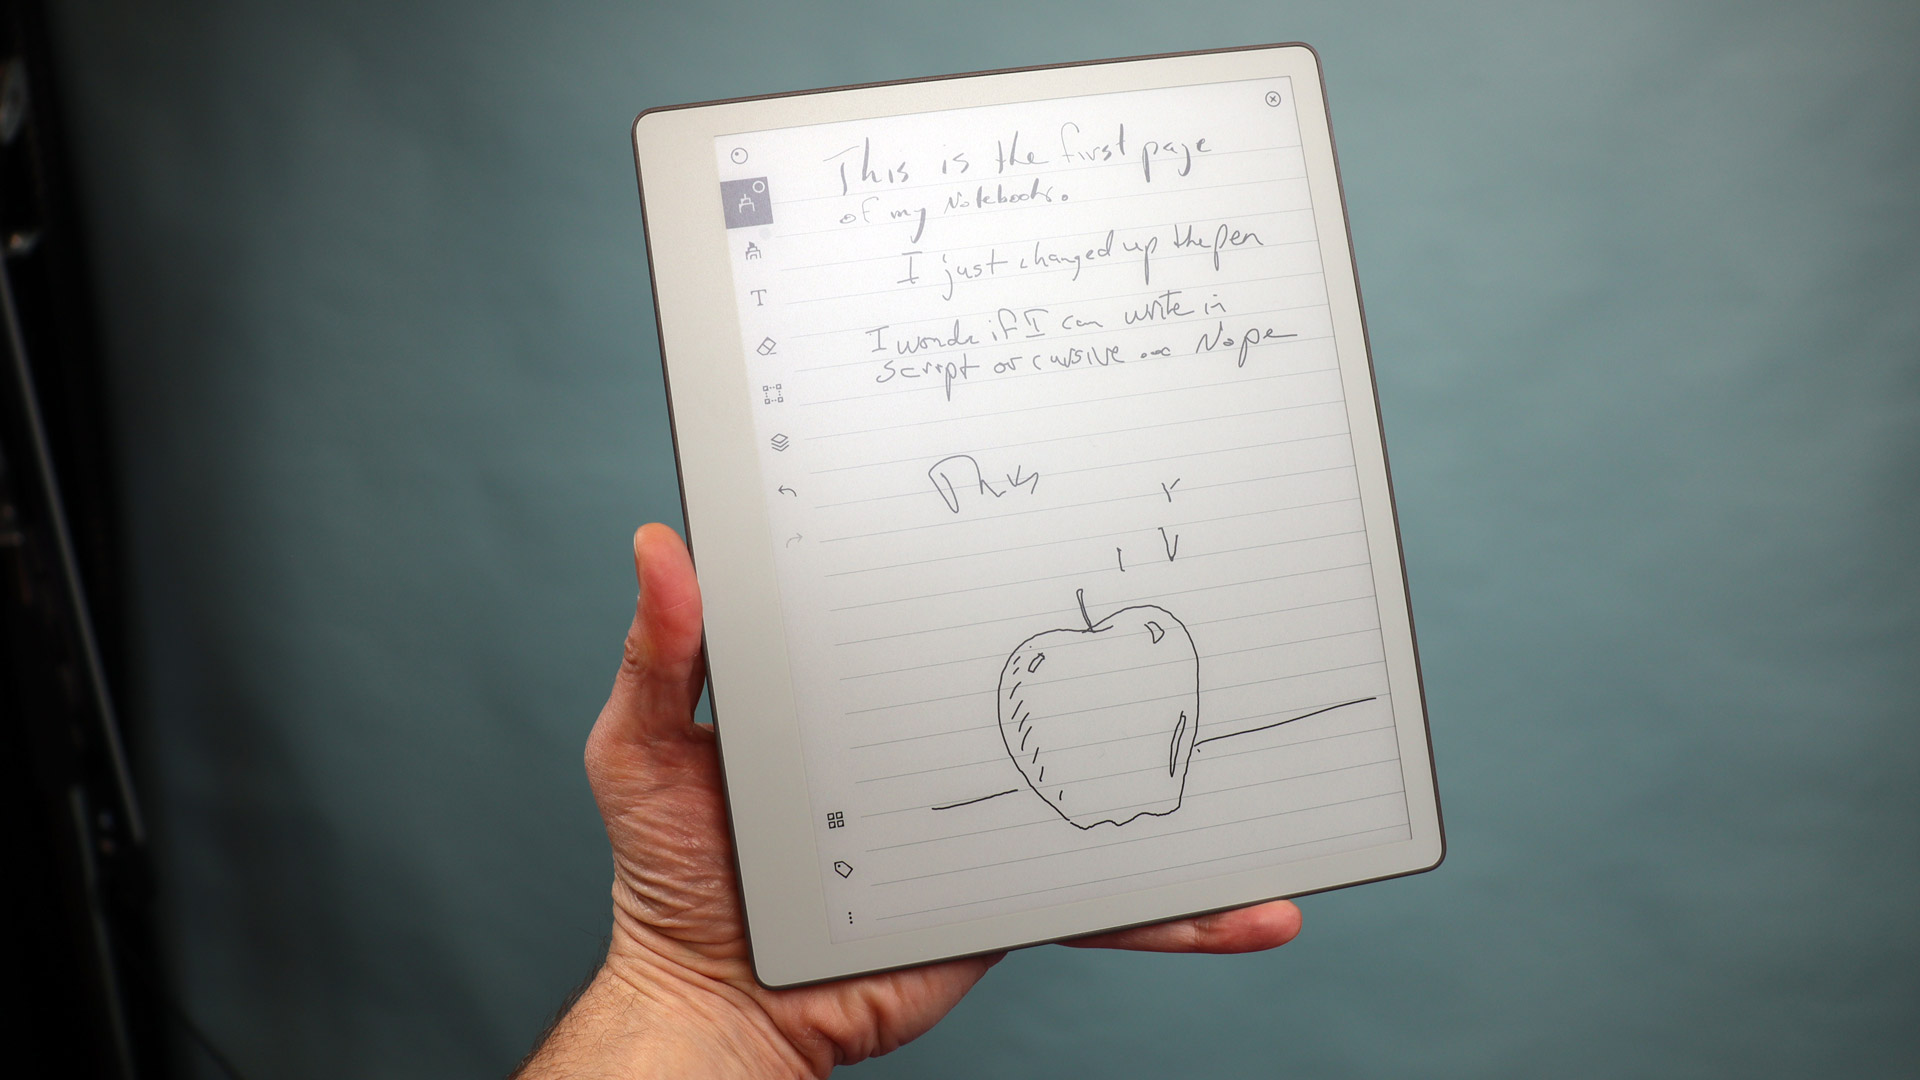 This is the first page
of my Notebook.
I just changed up the pen
I wonde if I can write in
script or cursive ... Nope
T